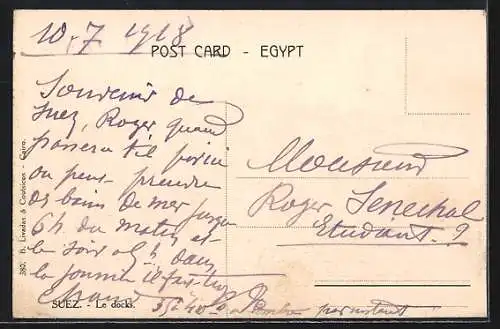 10-7 1918
POST CARD - EGYPT
Souvenir de
Suez, Roger quand
passera t'il
on peut prendre
des bains de mer jusque
6h du matin et
le soir dans
la journée il fait trop
chaud 35 à 40°
Monsieur
Roger Senechal
Etudiant
380. B. Livadas & Coutsicos - Cairo.
SUEZ. - Le docks.